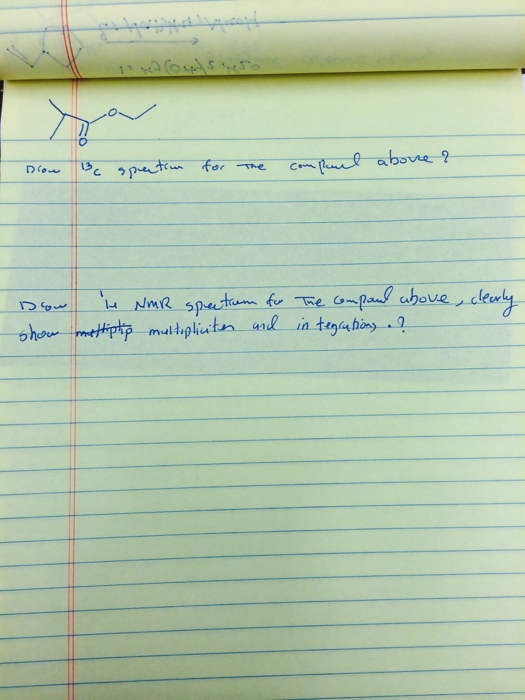 O
O
Draw 13C spectrum for the compound above?
Draw 1H NMR spectrum for The compound above, clearly
show multiplicites and integrations.?